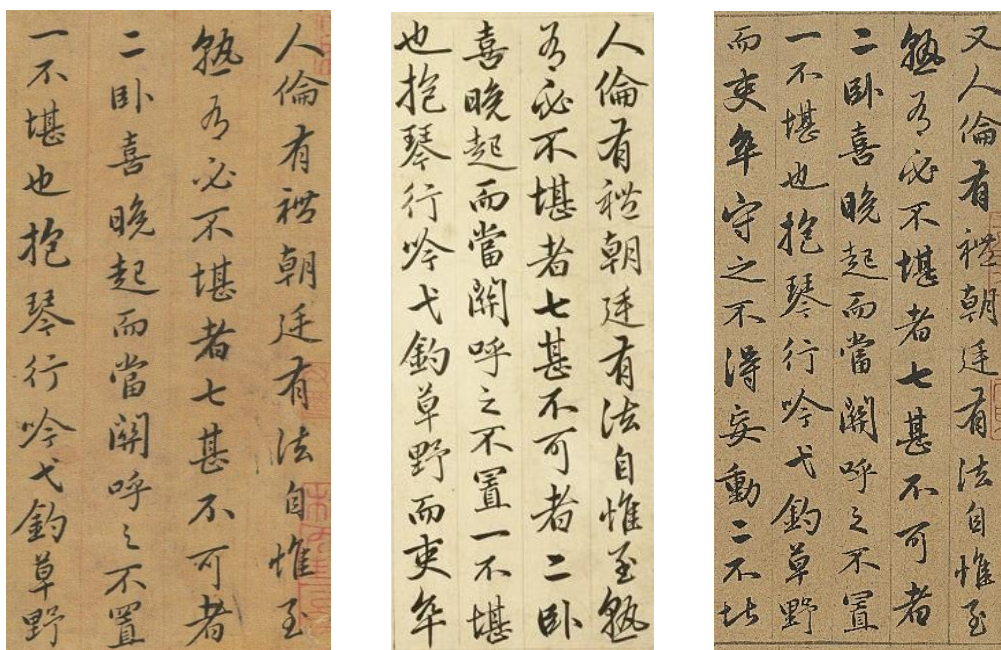 人倫有禮朝廷有法自惟至
熟有必不堪者七甚不可者
二卧喜晚起而當關呼之不置
一不堪也抱琴行吟弋釣草野
人倫有禮朝廷有法自惟至熟
有必不堪者七甚不可者二卧
喜晚起而當關呼之不置一不堪
也抱琴行吟弋釣草野而吏卒
又人倫有禮朝廷有法自惟至
熟有必不堪者七甚不可者
二卧喜晚起而當關呼之不置
一不堪也抱琴行吟弋釣草野
而吏卒守之不得妄動二不